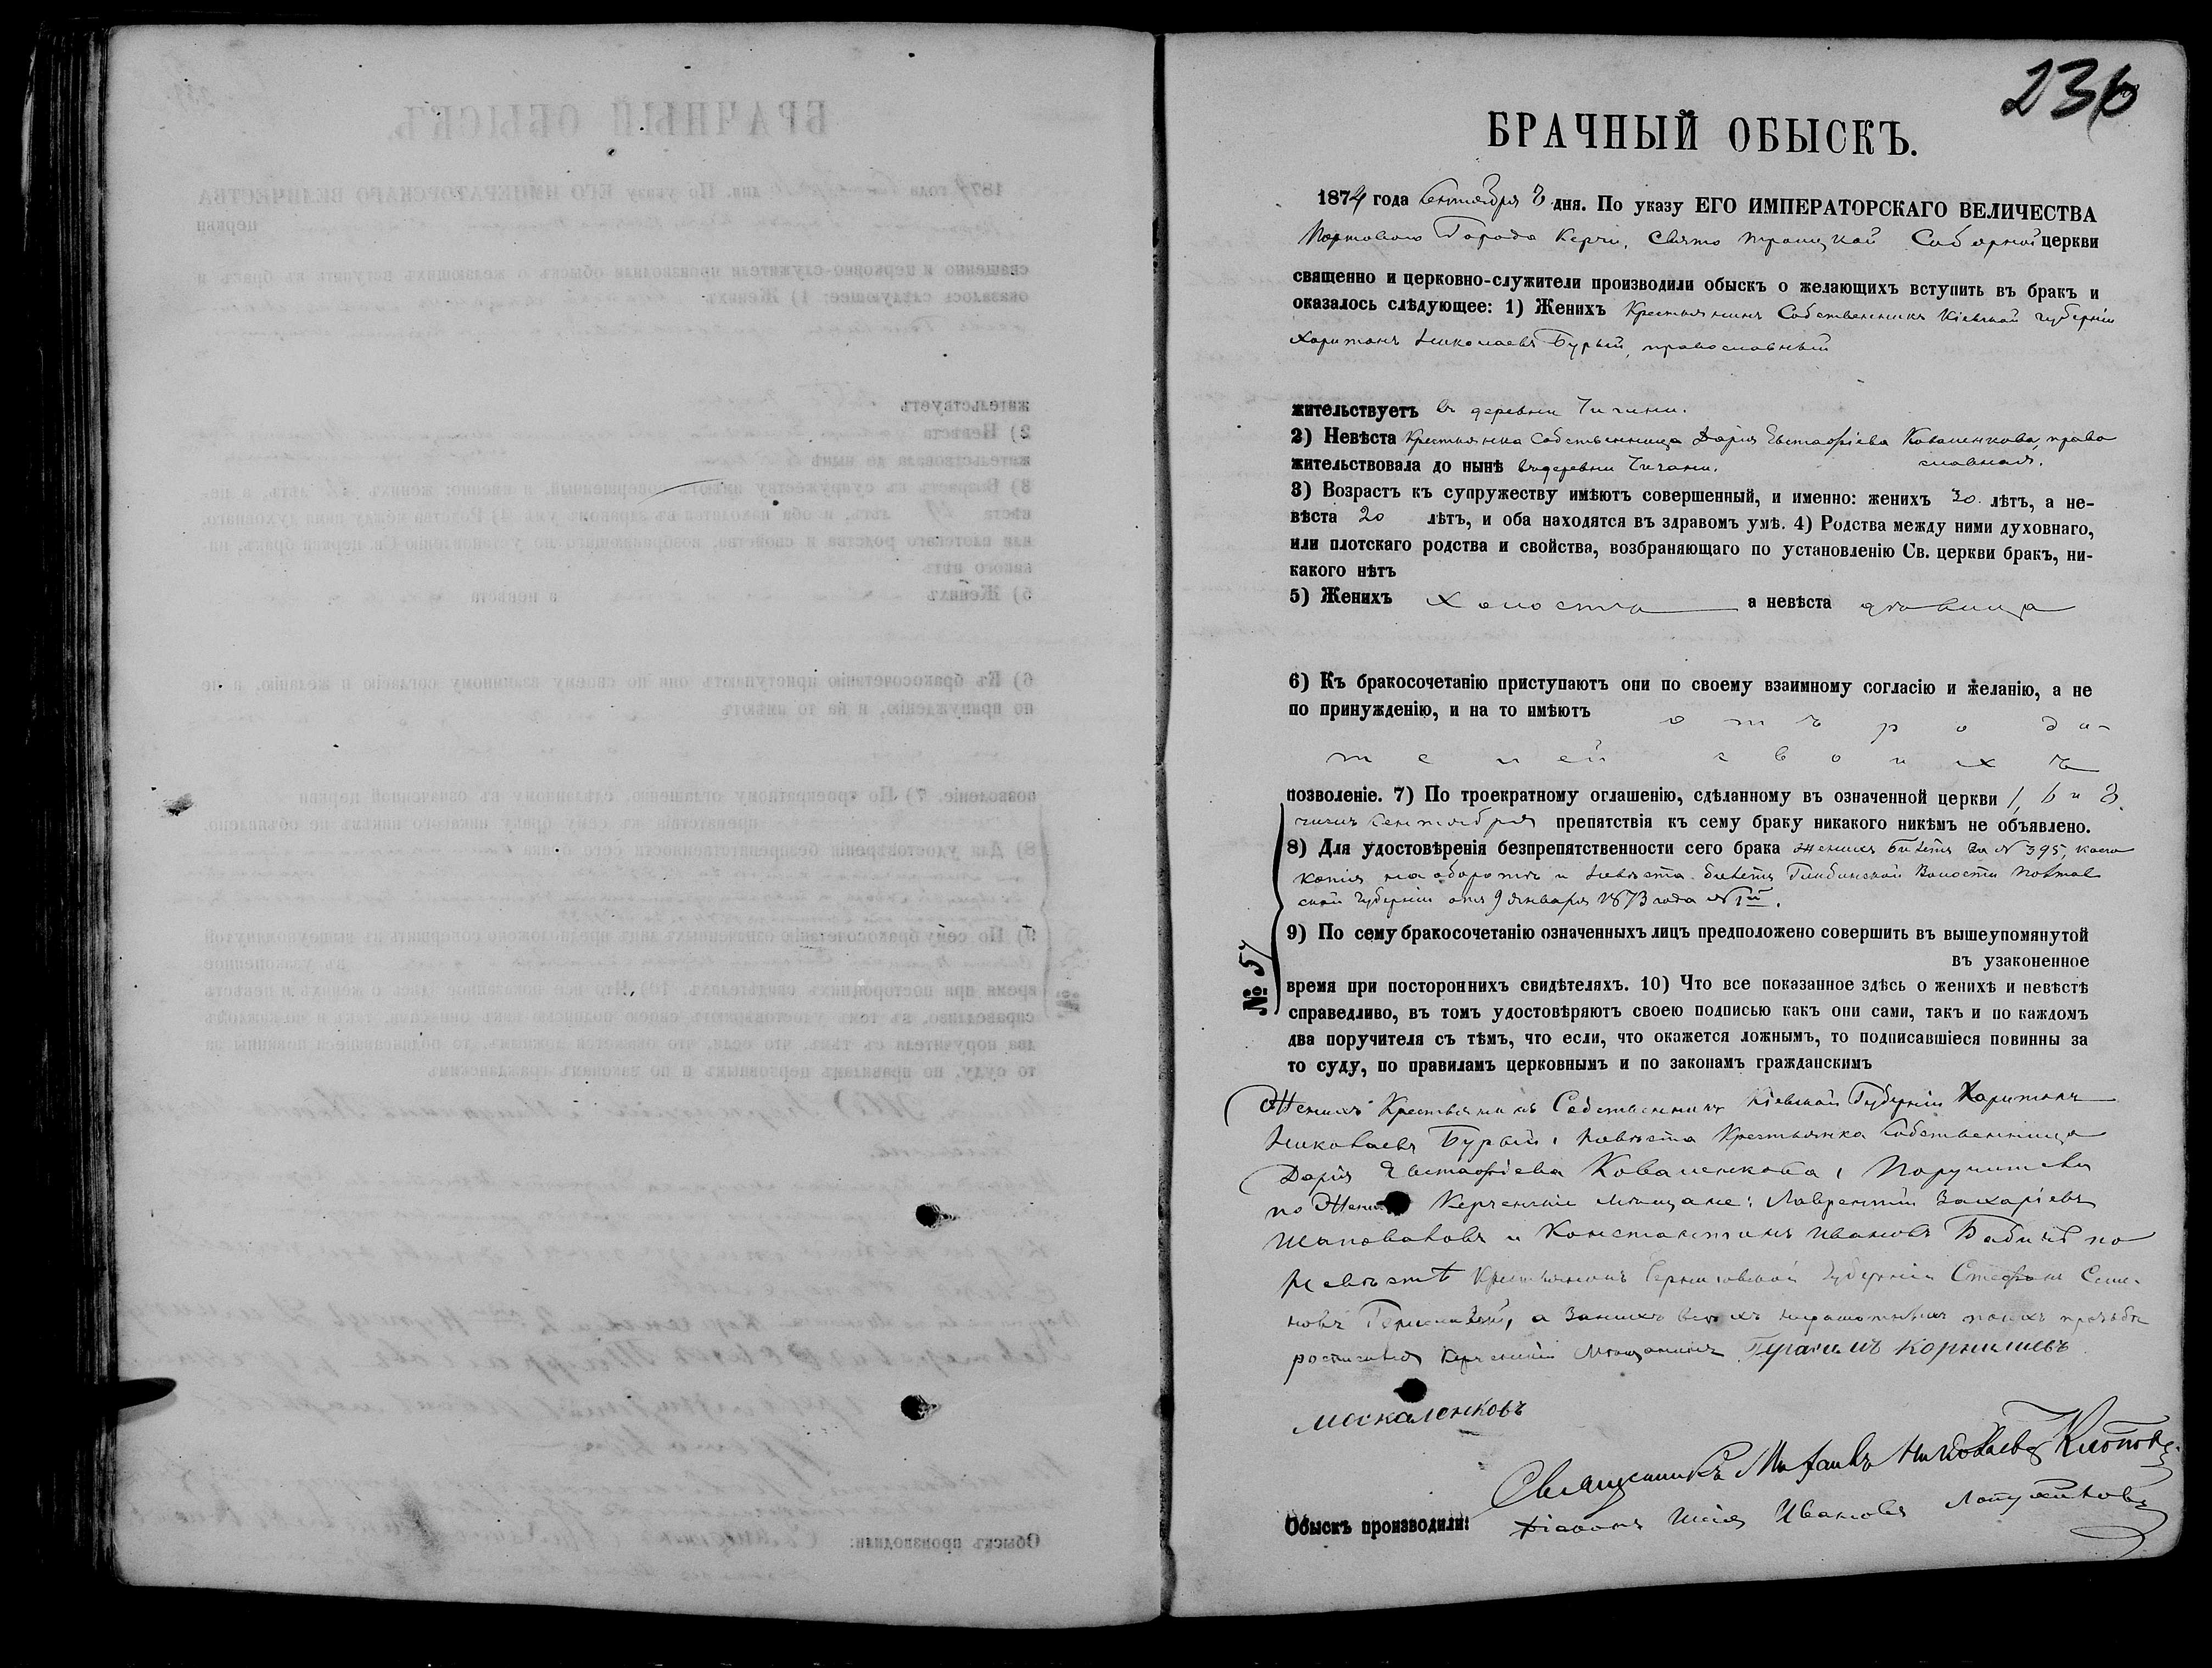 236
БРАЧНЫЙ ОБЫСКЪ.
1874 года Сентября 8 дня. По указу ЕГО ИМПЕРАТОРСКАГО ВЕЛИЧЕСТВА
Портоваго Города Керчи, Свято Троицкой Соборной церкви
священно и церковно-служители производили обыскъ о желающихъ вступить въ бракъ и
оказалось слѣдующее: 1) Женихъ Крестьянинъ Собственникъ Кіевской губерніи
Харитонъ Николаевъ Бурый, православный
жительствуетъ въ деревни
2) Невѣста Крестьянка Собственница Дарія Евстафіева Коваленкова, право
славная.
жительствовала до нынѣ въ деревни
3) Возрастъ къ супружеству имѣютъ совершенный, и именно: женихъ 30 лѣтъ, а не-
вѣста 20 лѣтъ, и оба находятся въ здравомъ умѣ. 4) Родства между ними духовнаго,
или плотскаго родства и свойства, возбраняющаго по установленію Св. церкви бракъ, ни-
какого нѣтъ
5) Женихъ холостъ а невѣста дѣвица
6) Къ бракосочетанію приступаютъ они по своему взаимному согласію и желанію, а не
по принужденію, и на то имѣютъ отъ роди-
телей своихъ
позволеніе. 7) По троекратному оглашенію, сдѣланному въ означенной церкви 1, 6 и 8
числъ Сентября препятствія къ сему браку никакого никѣмъ не объявлено.
8) Для удостовѣренія безпрепятственности сего брака женихъ билетъ за № 395, коего
копія на оборотѣ и невѣста билетъ Волости Полтав
ской губерніи отъ 9 Января 1873 года №
9) По сему бракосочетанію означенныхъ лицъ предположено совершить въ вышеупомянутой
въ узаконенное
время при постороннихъ свидѣтеляхъ. 10) Что все показанное здѣсь о женихѣ и невѣстѣ
справедливо, въ томъ удостовѣряютъ своею подписью какъ они сами, такъ и по каждомъ
два поручителя съ тѣмъ, что если, что окажется ложнымъ, то подписавшіеся повинны за
то суду, по правиламъ церковнымъ и по законамъ гражданскимъ
№ 57
Женихъ Крестьянинъ Собственникъ Кіевской Губерніи Харитонъ
Николаевъ Бурый, Невѣста Крестьянка Собственница
Дарія Евстафіева Коваленкова, Поручители
по Женихѣ Керченскіе мѣщане: Лаврентій Захаріевъ
Шаповаловъ и Константинъ Ивановъ Бабичъ по
Невѣстѣ Крестьянинъ Черниговской Губерніи Стефанъ Семе-
новъ а за нихъ всѣхъ неграмотныхъ по ихъ прозьбѣ
росписался Керченскій Мѣщанинъ Корнилиевъ
москаленковъ
Священникъ Михаилъ Николаевъ
Обыскъ производили: Діаконъ Илія Ивановъ